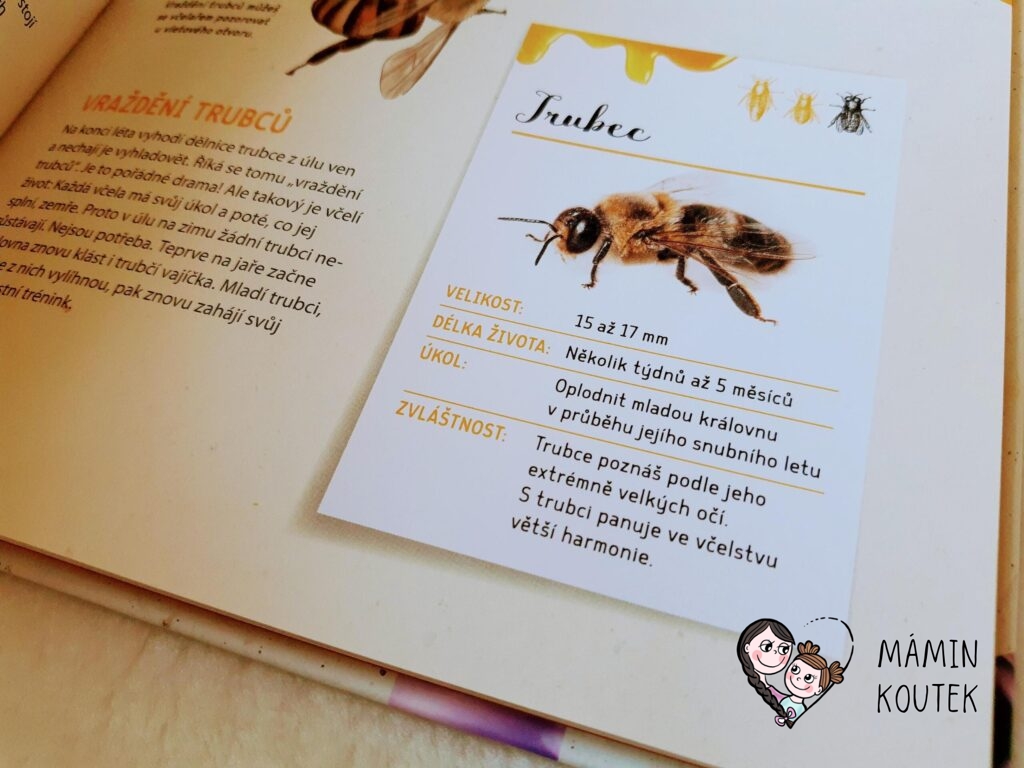 stojí
Vraždění trubců můžeš
se včelařem pozorovat
u vletového otvoru.
VRAŽDĚNÍ TRUBCŮ
Na konci léta vyhodí dělnice trubce z úlu ven
a nechají je vyhladovět. Říká se tomu „vraždění
trubců“. Je to pořádné drama! Ale takový je včelí
život: Každá včela má svůj úkol a poté, co jej
splní, zemře. Proto v úlu na zimu žádní trubci ne-
zůstávají. Nejsou potřeba. Teprve na jaře začne
lovna znovu klást i trubčí vajíčka. Mladí trubci,
z nich vylíhnou, pak znovu zahájí svůj
stní trénink.
Trubec
VELIKOST: 15 až 17 mm
DÉLKA ŽIVOTA: Několik týdnů až 5 měsíců
ÚKOL: Oplodnit mladou královnu
v průběhu jejího snubního letu
ZVLÁŠTNOST: Trubce poznáš podle jeho
extrémně velkých očí.
S trubci panuje ve včelstvu
větší harmonie.
MÁMIN
KOUTEK